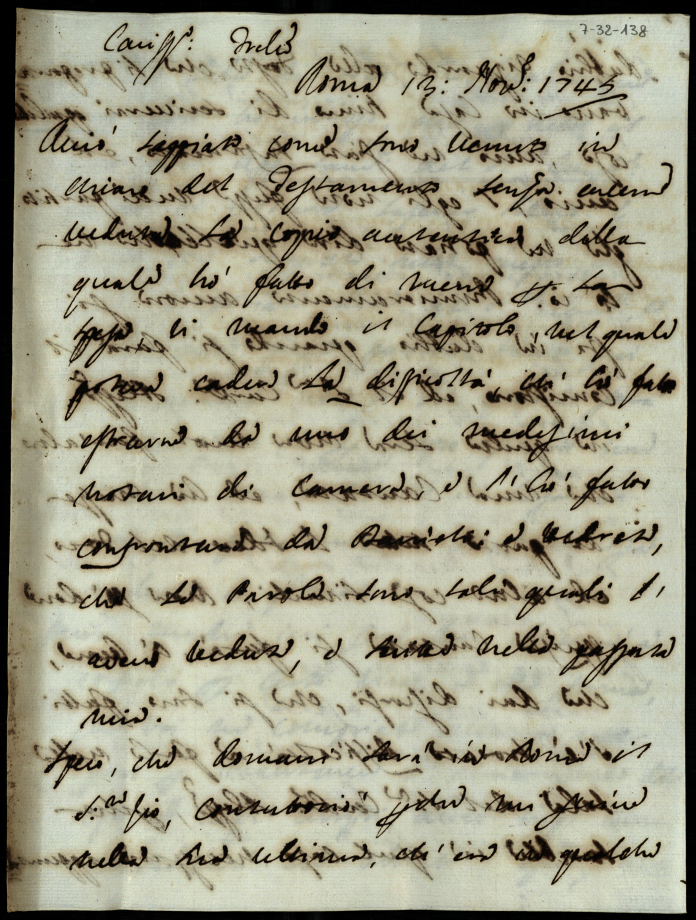 7-32-138
Cariss.º Frello
Roma 13: Nov.e: 1745
Acciò sappiate come sono venuto in
chiaro del Testamento senza averne
veduta la copia autentica dalla
quale hò fatto di meno p. la
spesa, vi mando il Capitolo, nel quale
poteva cadere la difficoltà, che hò fatto
estrarre da uno dei medesimi
notari di Camera, e l'hò fatto
confrontare da e vedrete,
che le Parole sono tali quali l'
avevo vedute, e scritte nella passata
mia.
Spero, che domani sarà in Roma il
S.re Pio, che mi scrive
nella sua ultima, ch'era in qualche